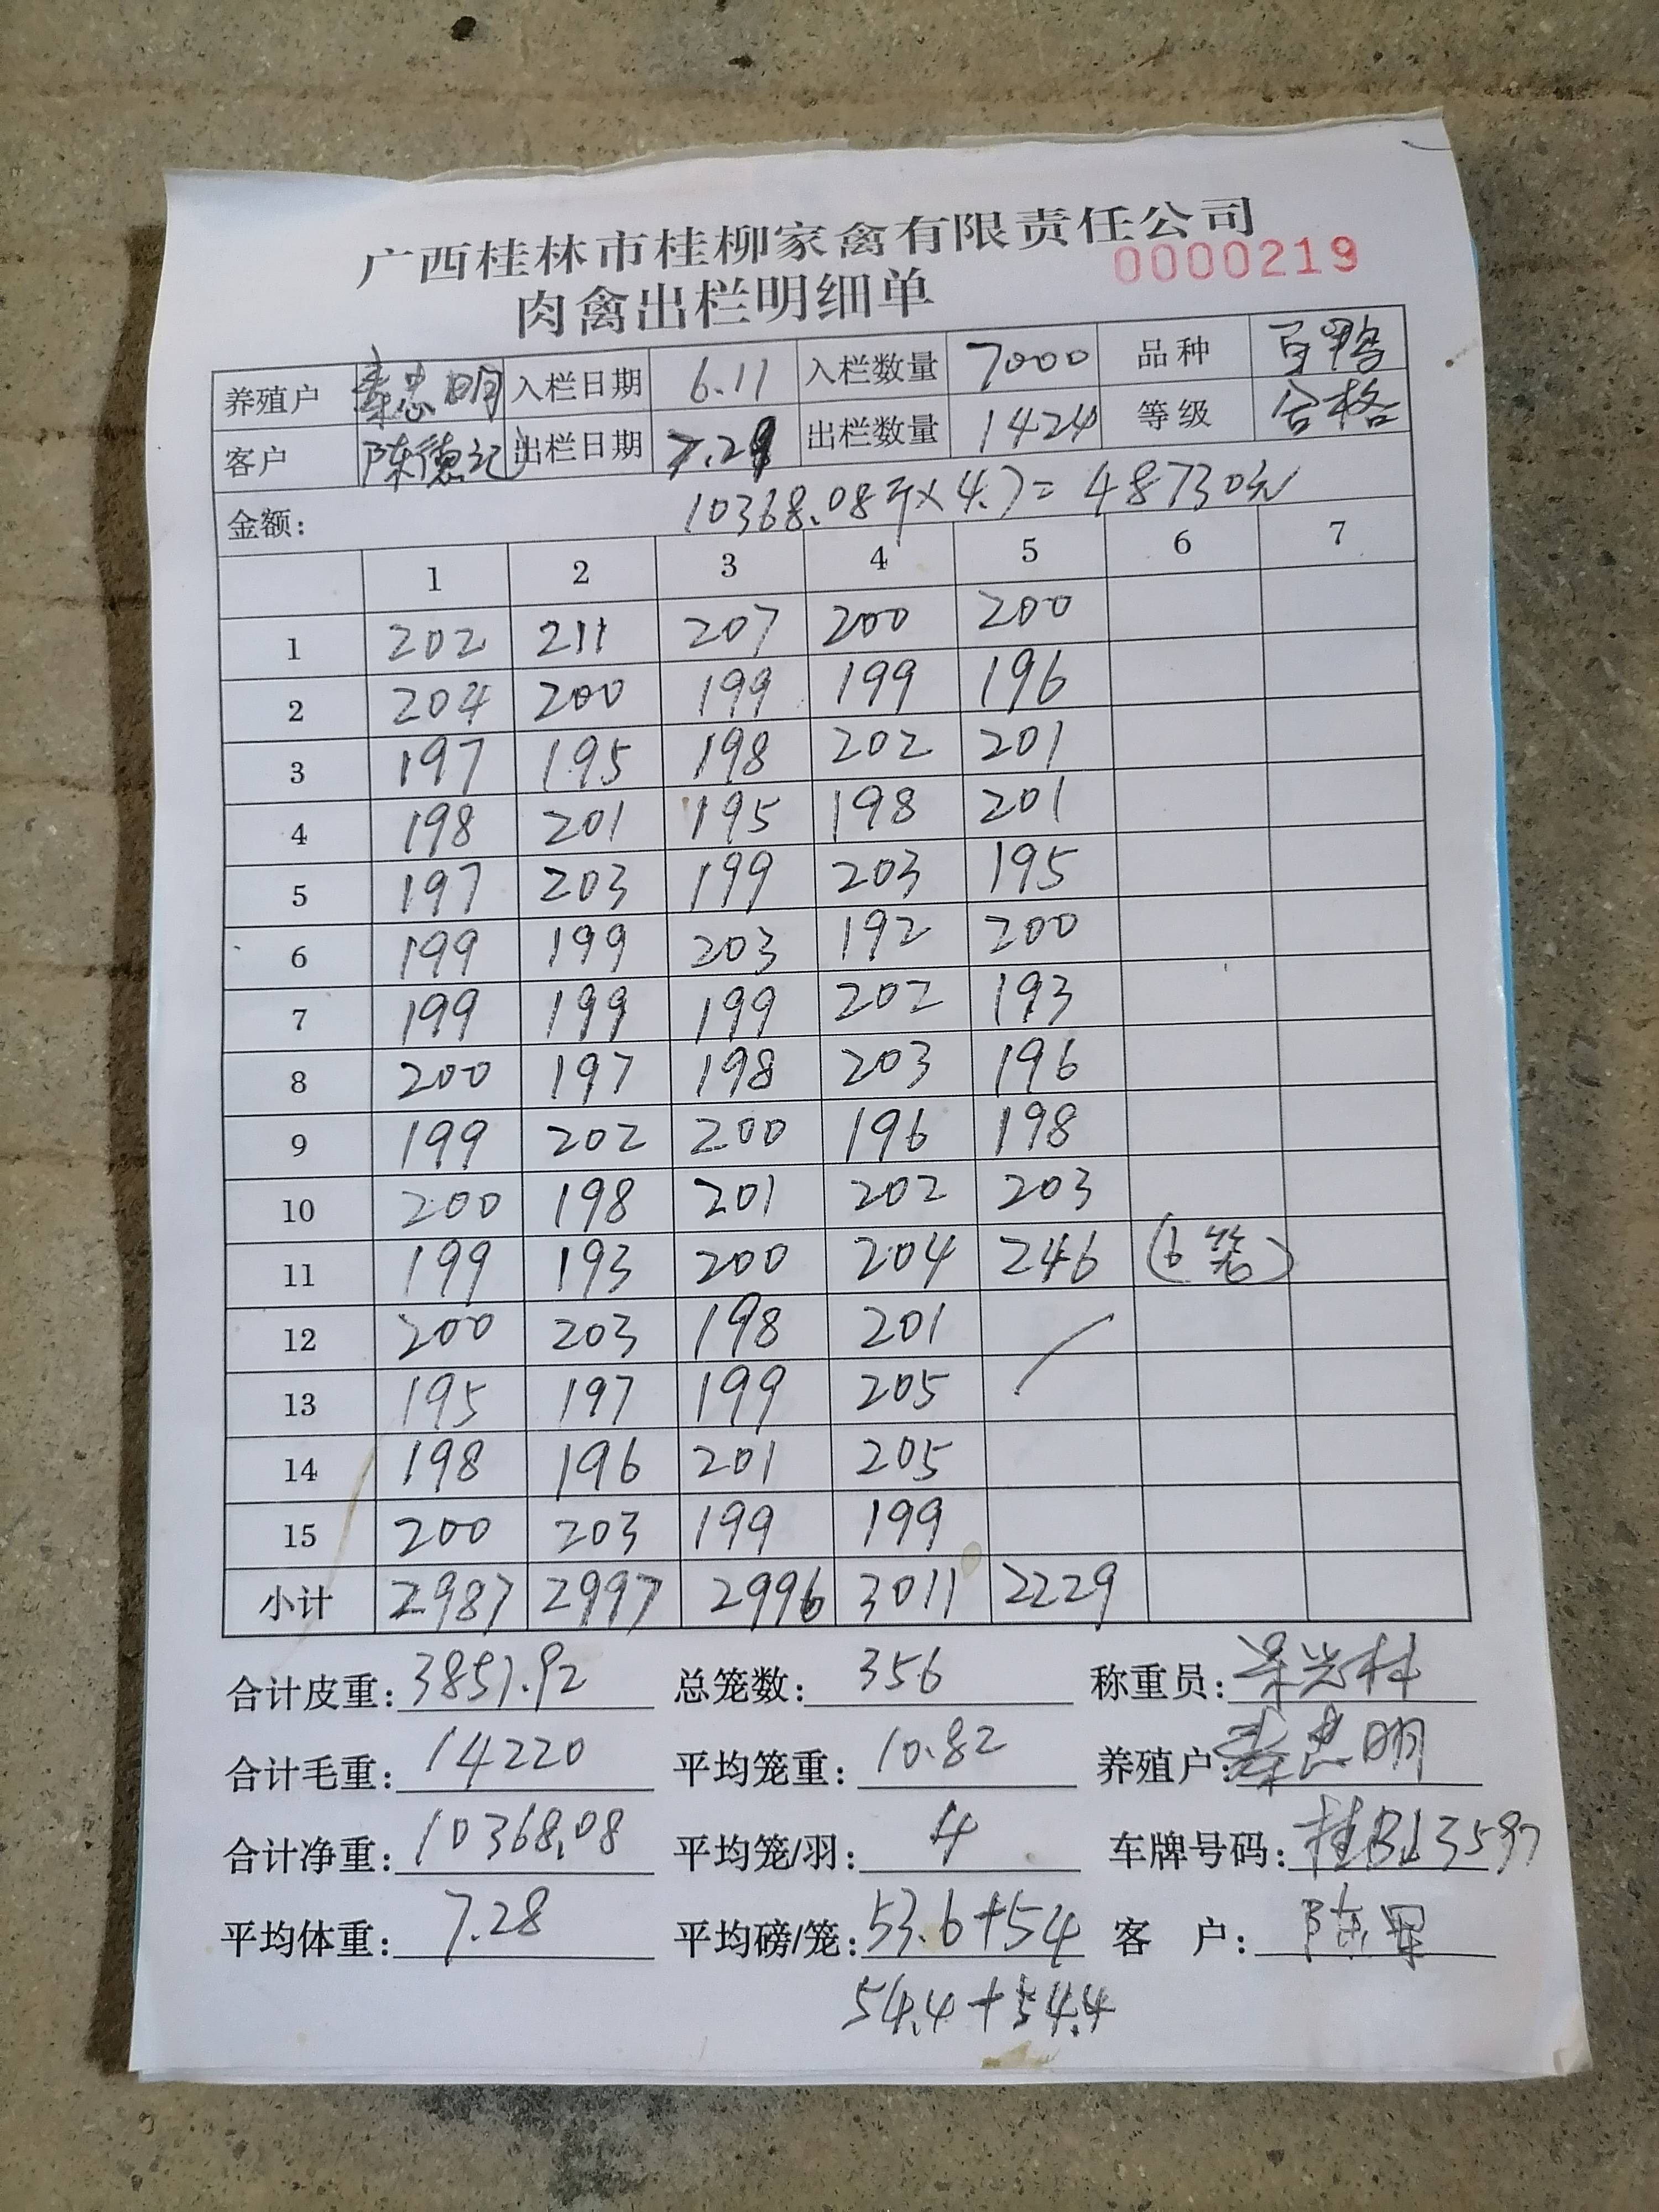 广西桂林市桂柳家禽有限责任公司
肉禽出栏明细单 0000219
养殖户 秦忠明 入栏日期 6.11 入栏数量 7000 品种 百鸭
客户 陈德记 出栏日期 7.29 出栏数量 1424 等级 合格
金额: 10368.08斤×4.7=48730元
1 2 3 4 5 6 7
1 202 211 207 200 200
2 204 200 199 199 196
3 197 195 198 202 201
4 198 201 195 198 201
5 197 203 199 203 195
6 199 199 203 192 200
7 199 199 199 202 193
8 200 197 198 203 196
9 199 202 200 196 198
10 200 198 201 202 203
11 199 193 200 204 246 (6笼)
12 200 203 198 201
13 195 197 199 205
14 198 196 201 205
15 200 203 199 199
小计 2987 2997 2996 3011 2229
合计皮重: 3851.92 总笼数: 356 称重员:
合计毛重: 14220 平均笼重: 10.82 养殖户: 秦忠明
合计净重: 10368.08 平均笼/羽: 4 车牌号码:
平均体重: 7.28 平均磅/笼: 53.6+54 客 户: 陈军
54.4+54.4